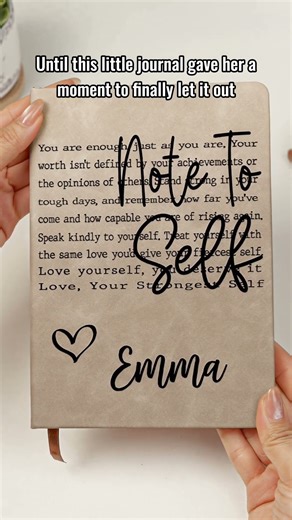 Until this little journal gave her a
moment to finally let it out
Note To
Self
You are enough just as you are, Your
worth isn't defined by your achievements or
the opinions of others, Stand strong in your
tough days, and remember how far you've
come and how capable you are of rising again,
Speak kindly to yourself, Treat yourself with
the same love you'd give your fiercest self
Love yourself, you deserve it
Love, Your Strongest Self
Emma